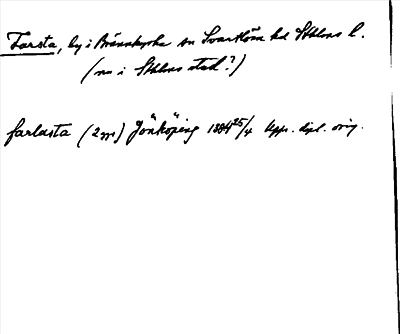 Farsta, by i Brännkyrka sn Svartlösa hd Sthlms l.
(nu i Sthlms stad?)
farlasta (2 ggr) Jönköping 1384 25/4 Upps. dipl. orig.